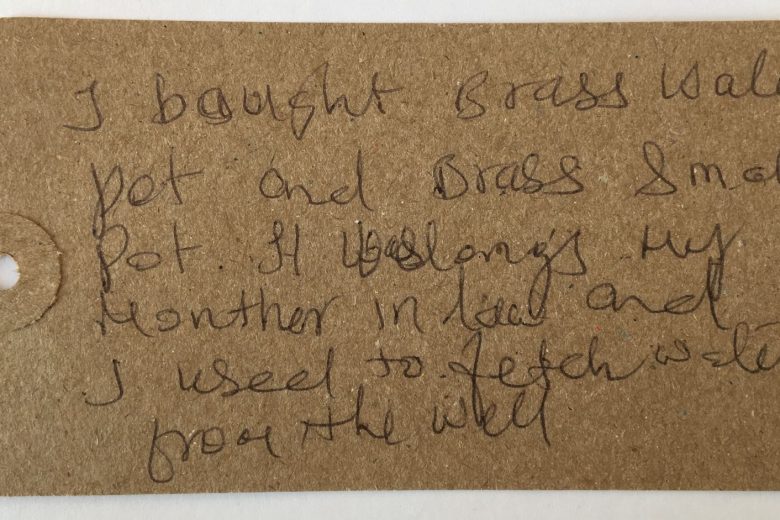 I bought Brass Wate
pot and Brass Smal
Pot. It belongs My
Monther in law and
I used to fetch wate
from the well